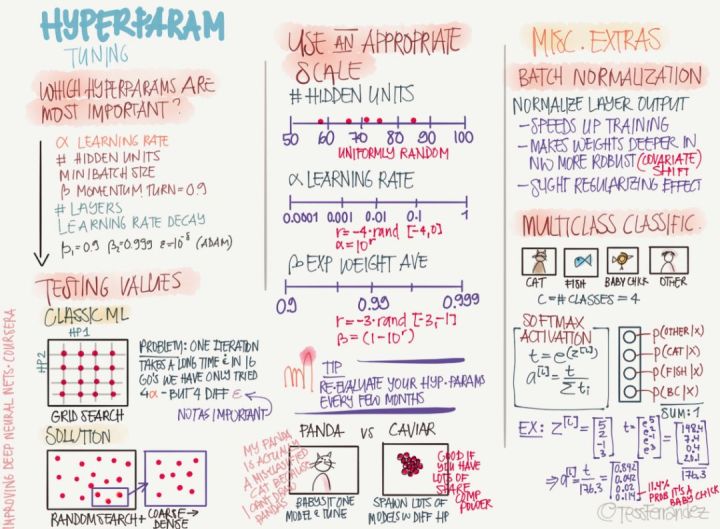 HYPERPARAM
TUNING
WHICH HYPERPARAMS ARE
MOST IMPORTANT?
α LEARNING RATE
# HIDDEN UNITS
MINIBATCH SIZE
β MOMENTUM TURN = 0.9
# LAYERS
LEARNING RATE DECAY
β₁=0.9 β₂=0.999 ε=10⁻⁸ (ADAM)
TESTING VALUES
CLASSIC ML
HP1
HP2
GRID SEARCH
PROBLEM: ONE ITERATION
TAKES A LONG TIME & IN 16
GO'S WE HAVE ONLY TRIED
4α - BUT 4 DIFF ε
NOT AS IMPORTANT
SOLUTION
RANDOM SEARCH +
COARSE →
DENSE
IMPROVING DEEP NEURAL NETS · COURSERA
USE AN APPROPRIATE
SCALE
# HIDDEN UNITS
50 60 70 80 90 100
UNIFORMLY RANDOM
α LEARNING RATE
0.0001 0.001 0.01 0.1 1
r = -4 · rand [-4,0]
α = 10ʳ
β EXP WEIGHT AVE
0.9 0.99 0.999
r = -3 · rand [-3,-1]
β = (1-10ʳ)
TIP
RE-EVALUATE YOUR HYP. PARAMS
EVERY FEW MONTHS
PANDA VS CAVIAR
MY PANDA
IS ACTUALLY
A MISCLASSIFIED
CAT BECAUSE
I CAN'T DRAW
PANDAS
BABYSIT ONE
MODEL & TUNE
GOOD IF
YOU HAVE
LOTS OF
SPARE
COMP
POWER
SPAWN LOTS OF
MODELS W DIFF HP
MISC. EXTRAS
BATCH NORMALIZATION
NORMALIZE LAYER OUTPUT
- SPEEDS UP TRAINING
- MAKES WEIGHTS DEEPER IN
NW MORE ROBUST (COVARIATE)
SHIFT
- SLIGHT REGULARIZING EFFECT
MULTICLASS CLASSIFIC.
CAT FISH BABY CHICK OTHER
C = # CLASSES = 4
SOFTMAX
ACTIVATION
t = e^(z^[L])
a^[L] = t / Σtᵢ
P(OTHER|X)
P(CAT|X)
P(FISH|X)
P(BC|X)
SUM: 1
EX: Z^[L] = [5 2 -1 3] t = [e⁵ e² e⁻¹ e³] = [148.4 7.4 0.4 20.1]
176.3
⇒ a^[L] = t / 176.3 = [0.842 0.042 0.002 0.114]
11.4%
PROB IT'S A
BABY CHICK
@TessFerrandez